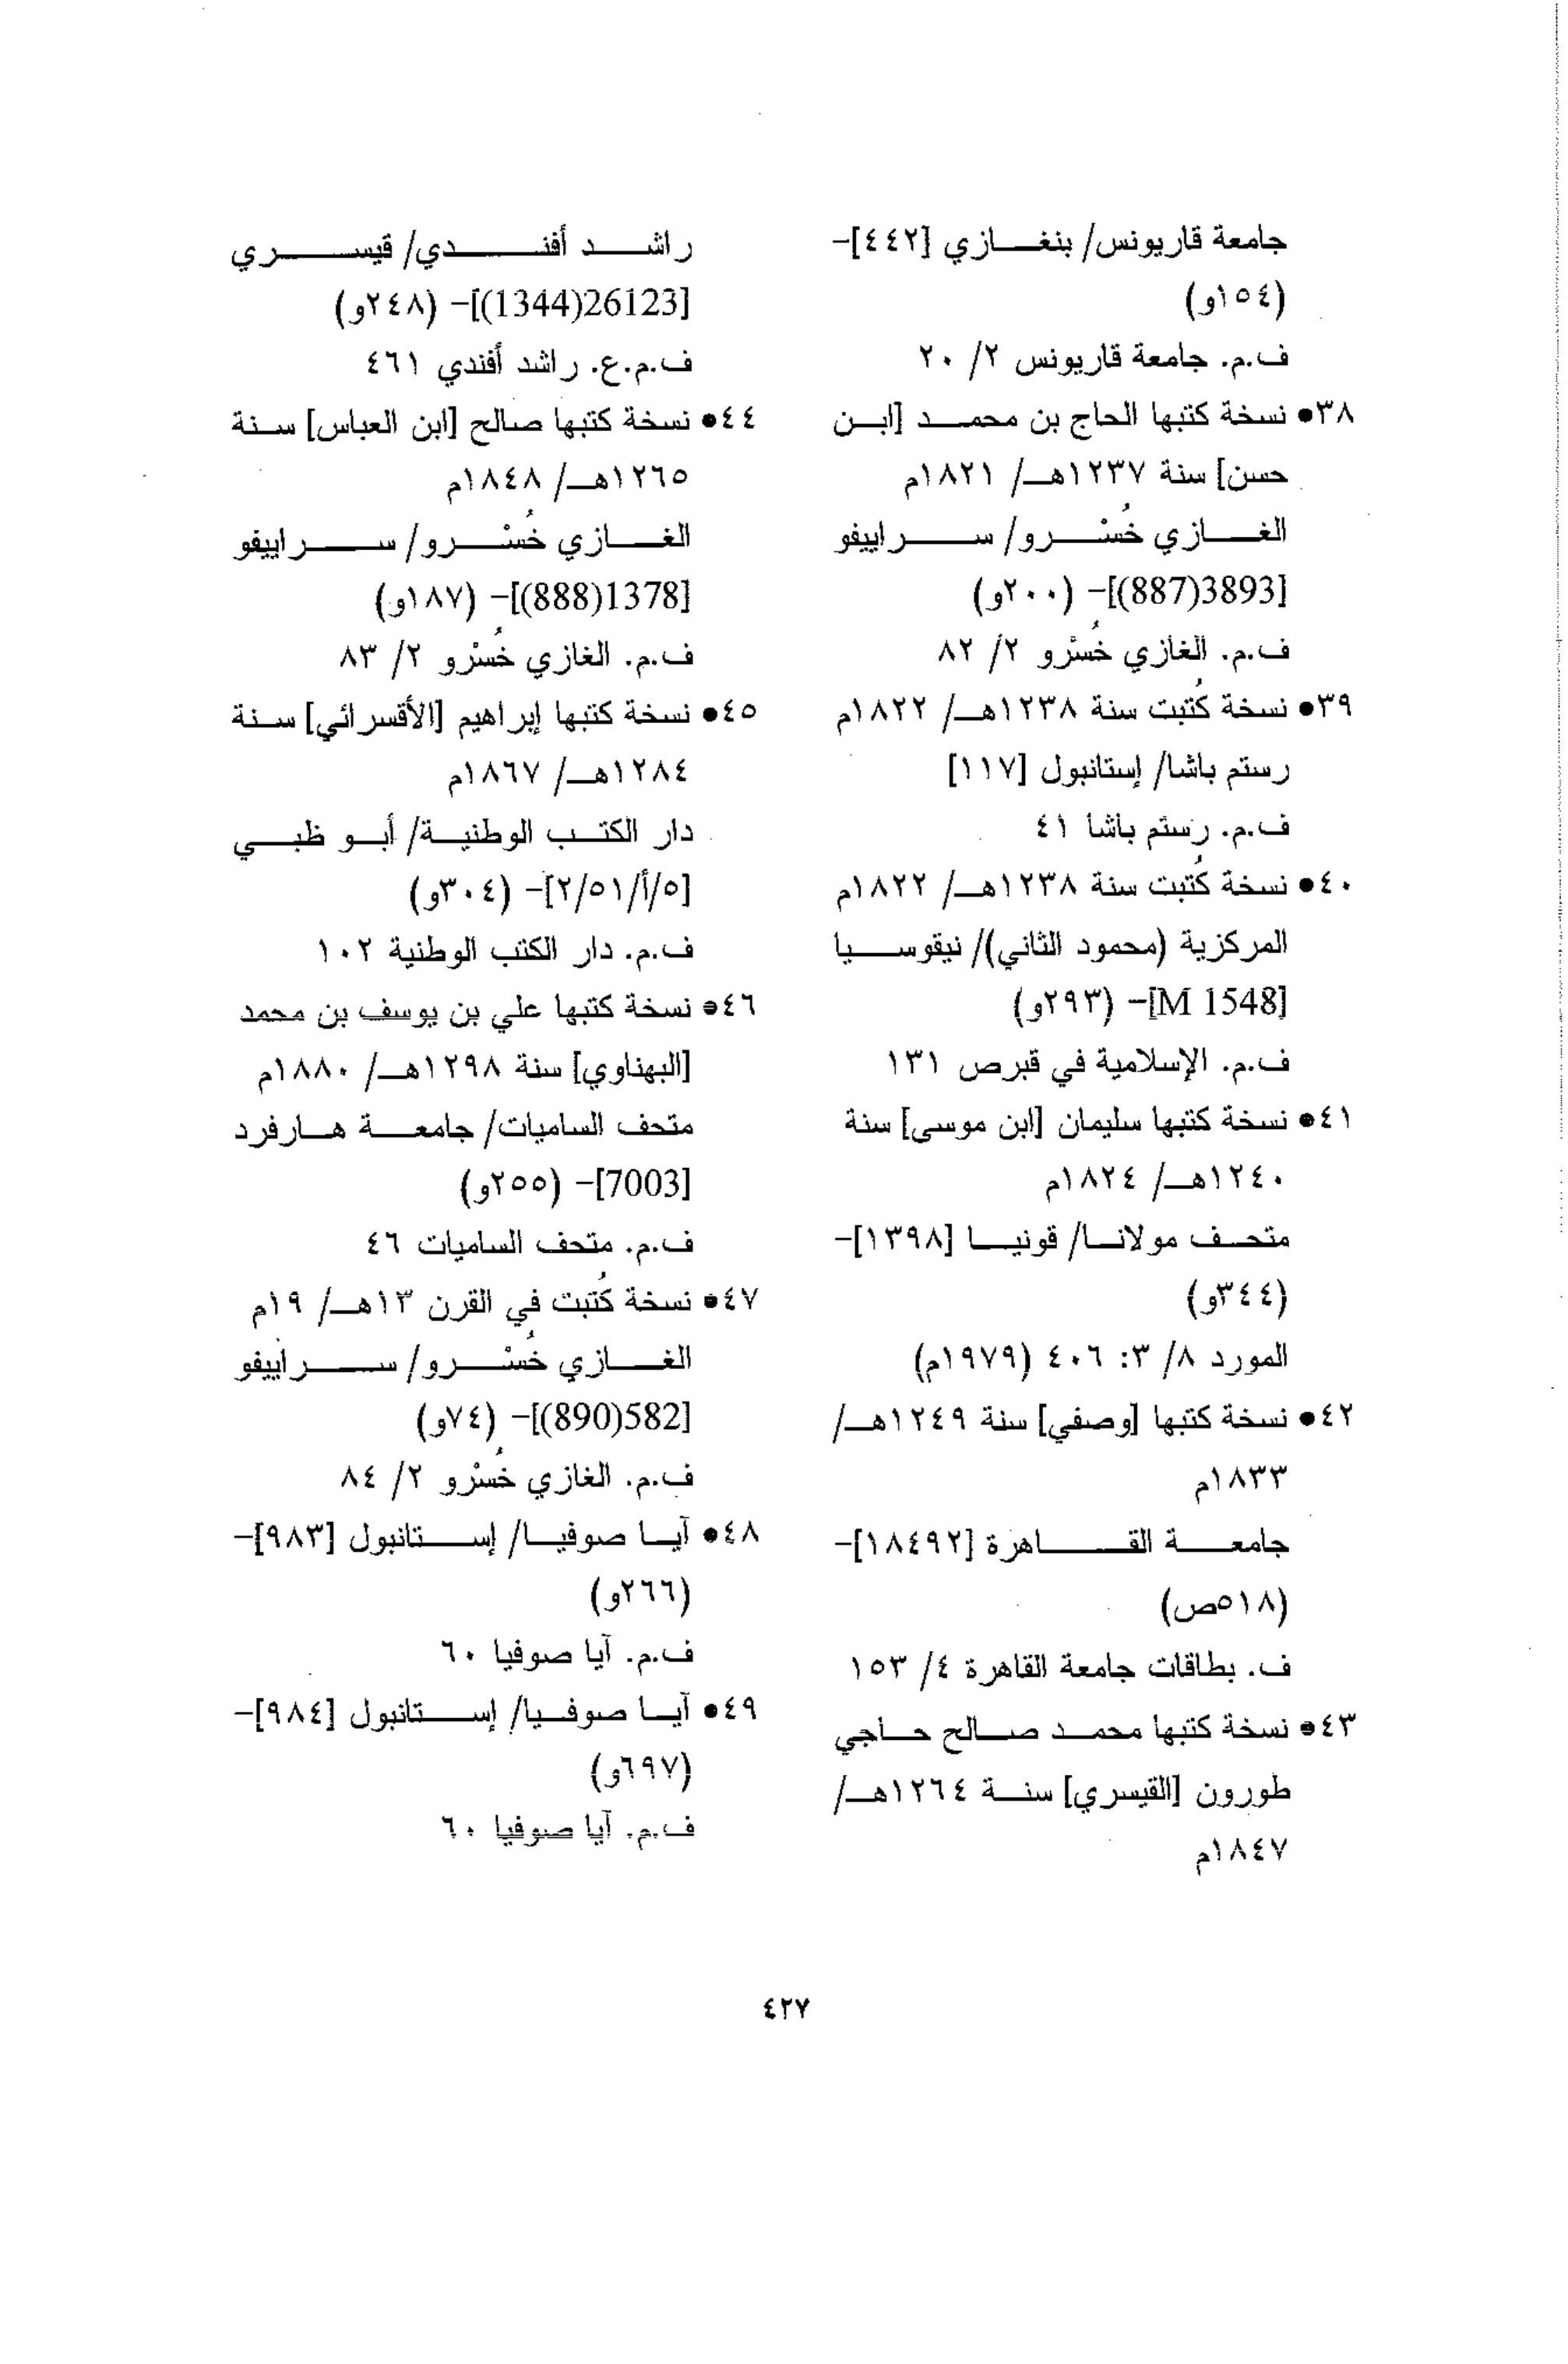 جامعة قاريونس/ بنغازي [٤٤٢]-
(١٥٤و)
ف.م. جامعة قاريونس ٢/ ٢٠
٣٨• نسخة كتبها الحاج بن محمد [ابن
حسن] سنة ١٢٣٧هـ/ ١٨٢١م
الغازي خُسْرو/ سراييفو
[3893(887)]- (٢٠٠و)
ف.م. الغازي خُسْرو ٢/ ٨٢
٣٩• نسخة كُتبت سنة ١٢٣٨هـ/ ١٨٢٢م
رستم باشا/ إستانبول [١١٧]
ف.م. رستم باشا ٤١
٤٠• نسخة كُتبت سنة ١٢٣٨هـ/ ١٨٢٢م
المركزية (محمود الثاني)/ نيقوسيا
[M 1548]- (٢٩٣و)
ف.م. الإسلامية في قبرص ١٣١
٤١• نسخة كتبها سليمان [ابن موسى] سنة
١٢٤٠هـ/ ١٨٢٤م
متحف مولانا/ قونيا [١٣٩٨]-
(٣٤٤و)
المورد ٨/ ٣: ٤٠٦ (١٩٧٩م)
٤٢• نسخة كتبها [وصفي] سنة ١٢٤٩هـ/
١٨٣٣م
جامعة القاهرة [١٨٤٩٢]-
(٥١٨ص)
ف. بطاقات جامعة القاهرة ٤/ ١٥٣
٤٣• نسخة كتبها محمد صالح حاجي
طورون [القيسري] سنة ١٢٦٤هـ/
١٨٤٧م
راشد أفندي/ قيسري
[26123(1344)]- (٢٤٨و)
ف.م.ع. راشد أفندي ٤٦١
٤٤• نسخة كتبها صالح [ابن العباس] سنة
١٢٦٥هـ/ ١٨٤٨م
الغازي خُسْرو/ سراييفو
[1378(888)]- (١٨٧و)
ف.م. الغازي خُسْرو ٢/ ٨٣
٤٥• نسخة كتبها إبراهيم [الأقسرائي] سنة
١٢٨٤هـ/ ١٨٦٧م
دار الكتب الوطنية/ أبو ظبي
[٥/أ/٢/٥١]- (٣٠٤و)
ف.م. دار الكتب الوطنية ١٠٢
٤٦• نسخة كتبها علي بن يوسف بن محمد
[البهناوي] سنة ١٢٩٨هـ/ ١٨٨٠م
متحف الساميات/ جامعة هارفرد
[7003]- (٢٥٥و)
ف.م. متحف الساميات ٤٦
٤٧• نسخة كُتبت في القرن ١٣هـ/ ١٩م
الغازي خُسْرو/ سراييفو
[582(890)]- (٧٤و)
ف.م. الغازي خُسْرو ٢/ ٨٤
٤٨• آيا صوفيا/ إستانبول [٩٨٣]-
(٢٦٦و)
ف.م. آيا صوفيا ٦٠
٤٩• آيا صوفيا/ إستانبول [٩٨٤]-
(٦٩٧و)
ف.م. آيا صوفيا ٦٠
٤٢٧